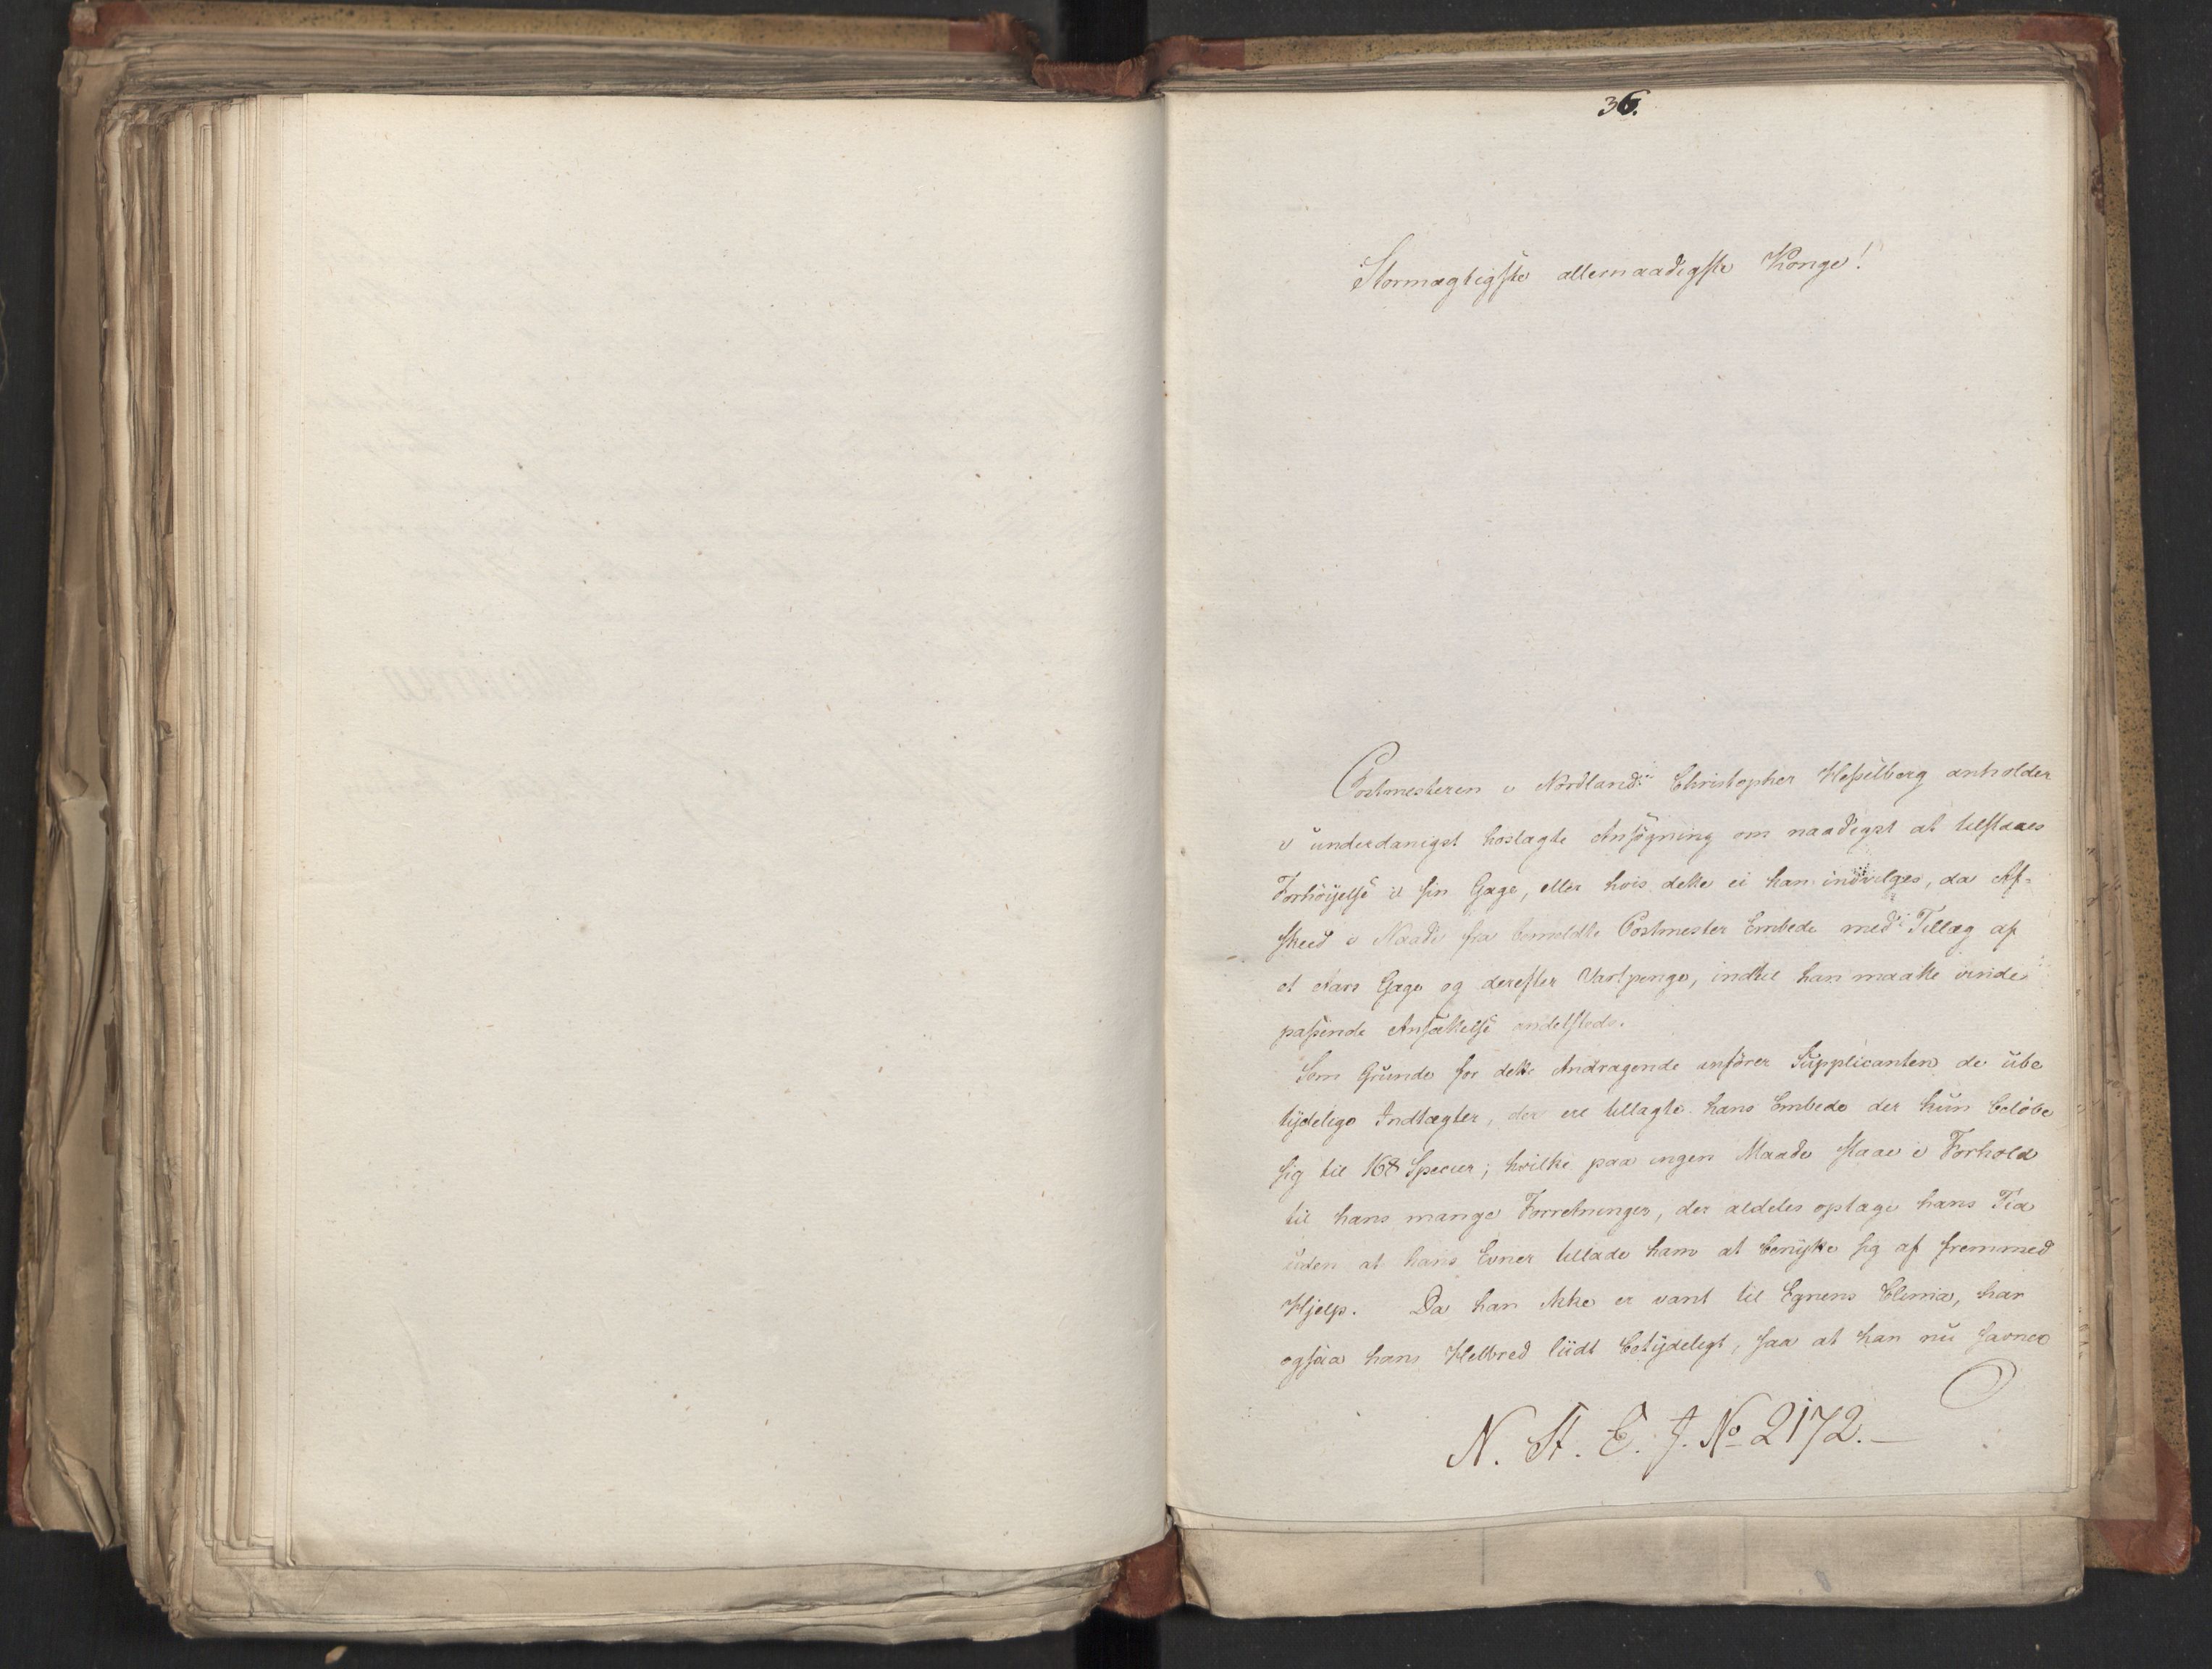 36.
Stormægtigste allernaadigste Konge!
Postmesteren i Nordland Christopher Hesselberg anholder
i underdanigst hoslagte Ansøgning om naadigst at tilstaaes
Forhöyelse i sin Gage, eller hvis dette ei kan indvilges, da Af-
skeed i Naade fra bemeldte Postmester Embede med Tillæg af
et Aars Gage og derefter Vartpenge, indtil han maatte vinde
passende Ansættelse andetsteds.
Som Grunde for dette Andragende anförer Supplicanten de ube
tydelige Indtægter, der ere tillagte hans Embede der kun belöbe
sig til 168 Specier; hvilke paa ingen Maade staae i Forhold
til hans mange Forretninger, der aldeles optage hans Tid
uden at hans Evner tillade ham at benytte sig af fremmed
Hjelp. Da han ikke er vant til Egnens Clima, har
ogsaa hans Helbred liidt betydeligt, saa at han nu savner
N. St. E. J. No 2172.